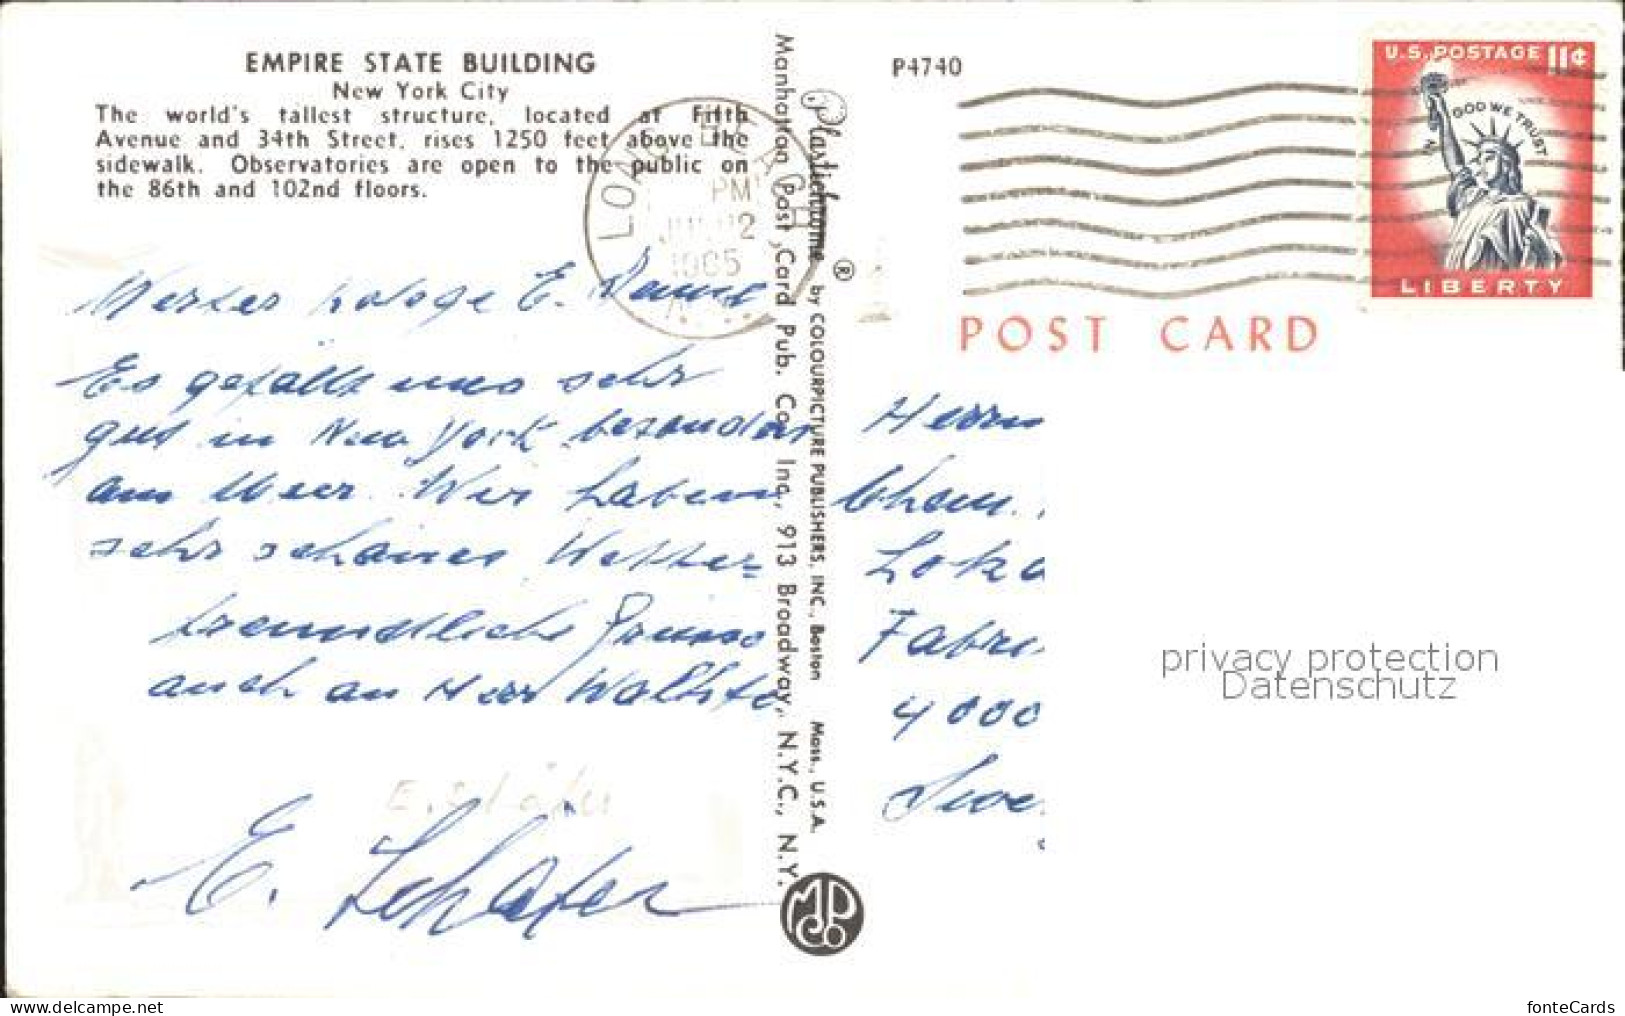 EMPIRE STATE BUILDING
New York City
The world's tallest structure, located at Fifth
Avenue and 34th Street, rises 1250 feet above the
sidewalk. Observatories are open to the public on
the 86th and 102nd floors.
Werter Kolege E.
Es gefällt uns sehr
gut in New York besonder
am Meer. Wir haben
sehr schönes Wetter
freundliche Grüsse
auch an Herr
E. Schäfer
E. Schäfer
LONG BEACH
PM
12
1965
Manhattan Post Card Pub. Co. Inc., 913 Broadway, N.Y.C., N.Y.
Plastichrome ® by COLOURPICTURE PUBLISHERS, INC., Boston Mass., U.S.A.
MPCo
P4740
U.S. POSTAGE 11¢
IN GOD WE TRUST
LIBERTY
POST CARD
Herrn
Chem.
Loka
Fabri
4000
privacy protection
Datenschutz
www.delcampe.net
fonteCards